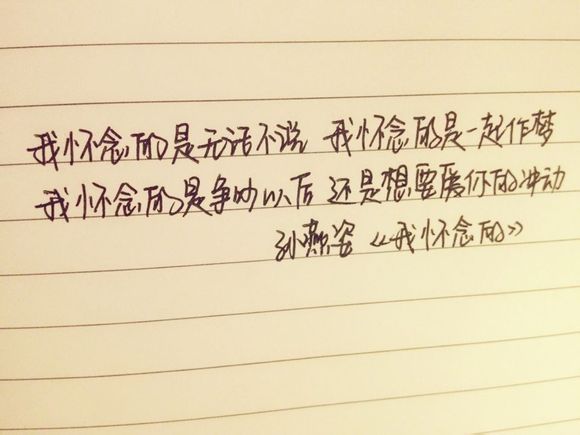 我怀念的是无话不说 我怀念的是一起作梦
我怀念的是争吵以后 还是想要爱你的冲动
孙燕姿《我怀念的》